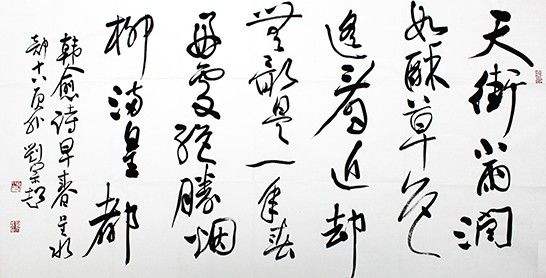 天街小雨潤
如酥草色
遙看近却
無最是一年春
好處絕勝烟
柳滿皇都
韓愈詩早春呈水
部十八員外 劉